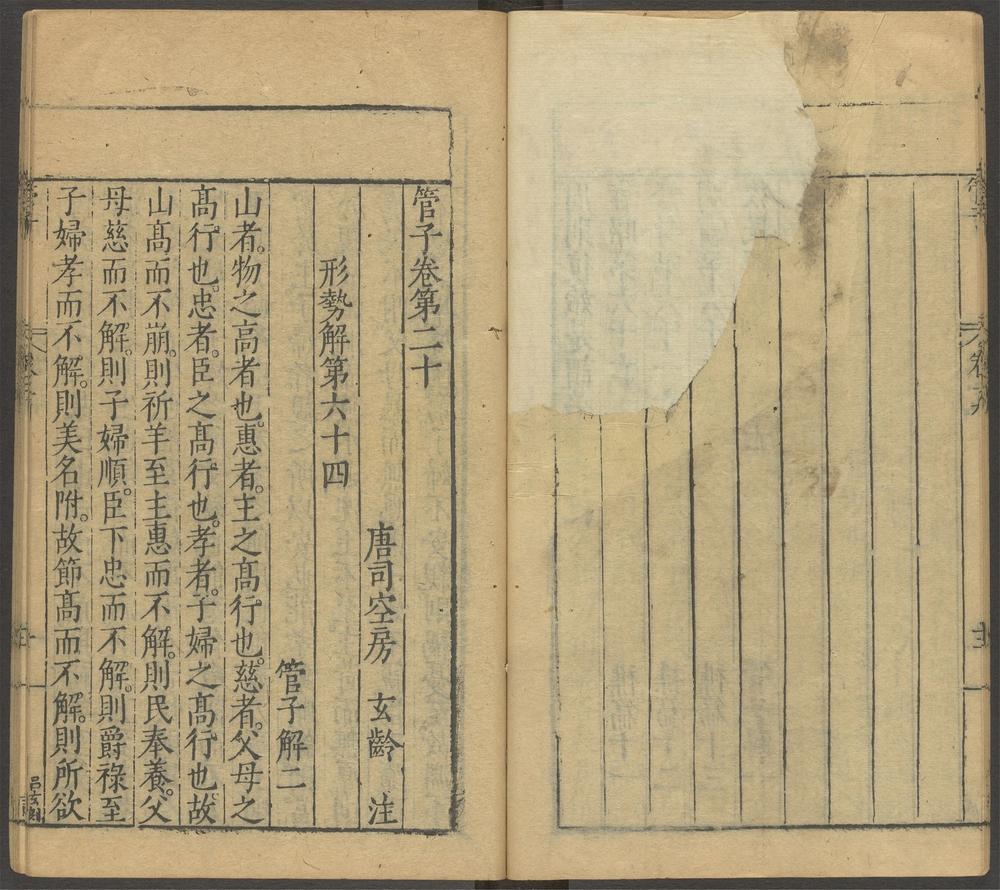 管子卷第二十
唐司空房　玄齡　注
形勢解第六十四
管子解二
山者。物之高者也。惠者。主之髙行也。慈者。父母之
髙行也。忠者。臣之髙行也。孝者。子婦之髙行也。故
山髙而不崩。則祈羊至主惠而不解。則民奉養。父
母慈而不解。則子婦順。臣下忠而不解。則爵祿至
子婦孝而不解。則美名附。故節髙而不解。則所欲